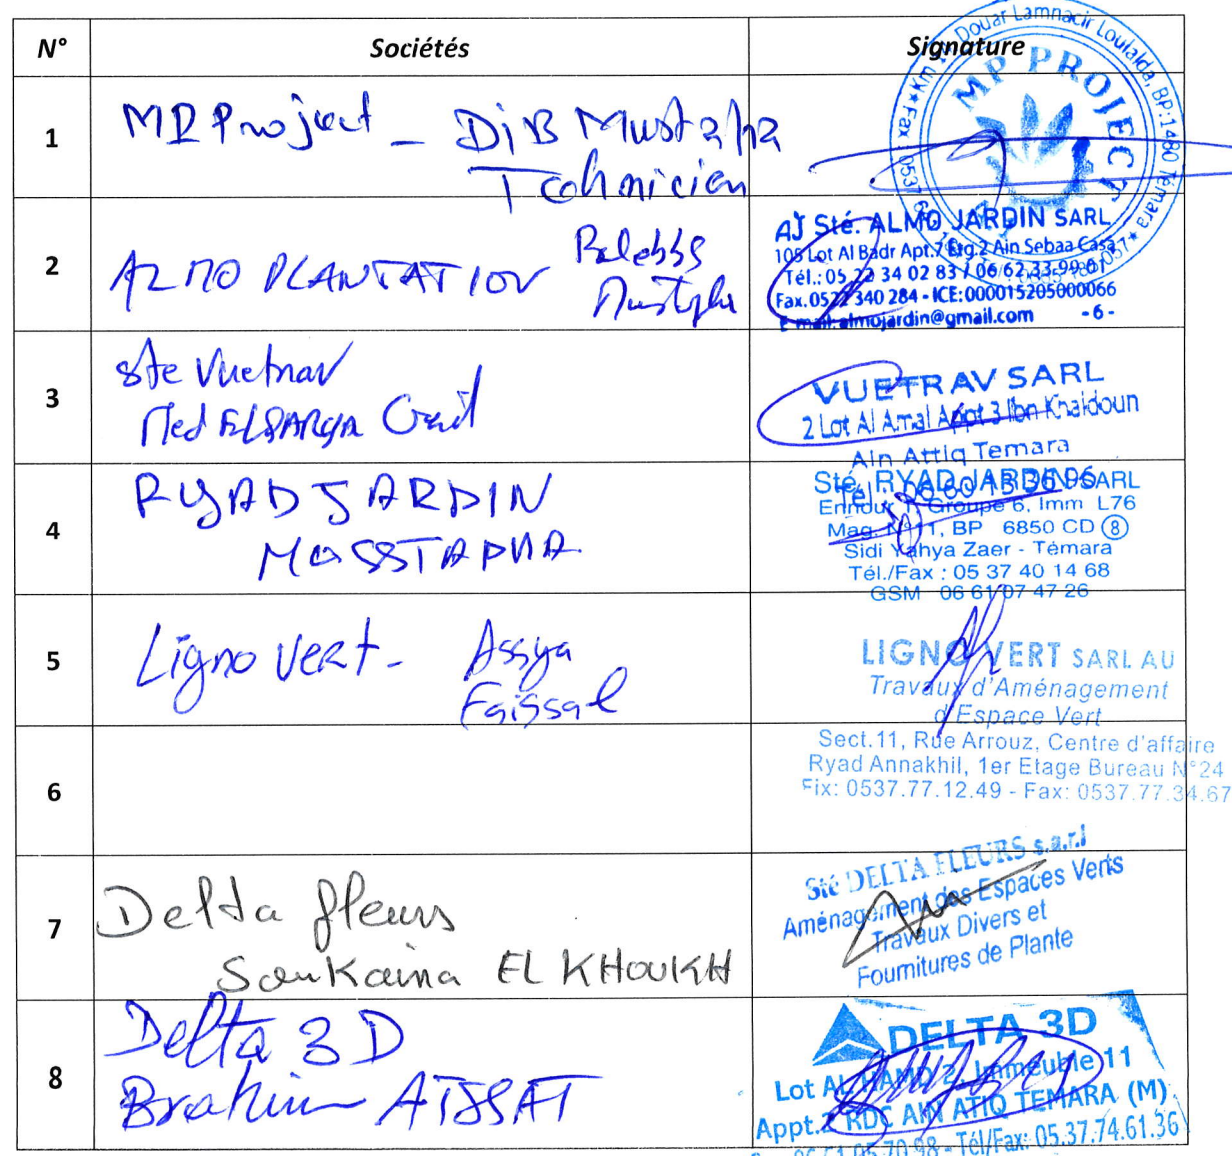 N° Sociétés Signature
1
MP Project - DiB Mustapha
Technicien
MP PROJECT
Douar Lamnacir Loulalda, BP:1480 Témara
2
ALMO PLANTATION
Mustapha
AJ Sté. ALMO JARDIN SARL
105 Lot Al Badr Apt.7 Etg.2 Ain Sebaa Casa
Tél.: 05 22 34 02 83 / 06 62 33 99 01
Fax.0522 340 284 - ICE:000015205000066
E-mail:almojardin@gmail.com -6-
3
Ste Vuetrav
Med
VUETRAV SARL
2 Lot Al Amal Appt 3 Ibn Khaldoun
Ain Attiq Temara
4
RYAD JARDIN
MOSSTAPHA
Sté. RYAD JARDIN SARL
Groupe 6, Imm L76
Mag. N°11, BP 6850 CD 8
Sidi Yahya Zaer - Témara
Tél./Fax : 05 37 40 14 68
GSM 06 61 07 47 26
5
Ligno Vert - Assya
Faissal
LIGNO VERT SARL AU
Travaux d'Aménagement
d'Espace Vert
Sect.11, Rue Arrouz, Centre d'affaire
Ryad Annakhil, 1er Etage Bureau N°24
Fix: 0537.77.12.49 - Fax: 0537.77.34.67
6
7
Delta fleurs
Soukaina EL KHOUKH
Sté DELTA FLEURS s.a.r.l
Aménagement des Espaces Verts
Travaux Divers et
Fournitures de Plante
8
Delta 3D
Brahim AISSAT
DELTA 3D
Lot AL HAMD 2, Immeuble 11
Appt.2 RDC AIN ATIQ TEMARA (M)
Tél/Fax: 05.37.74.61.36